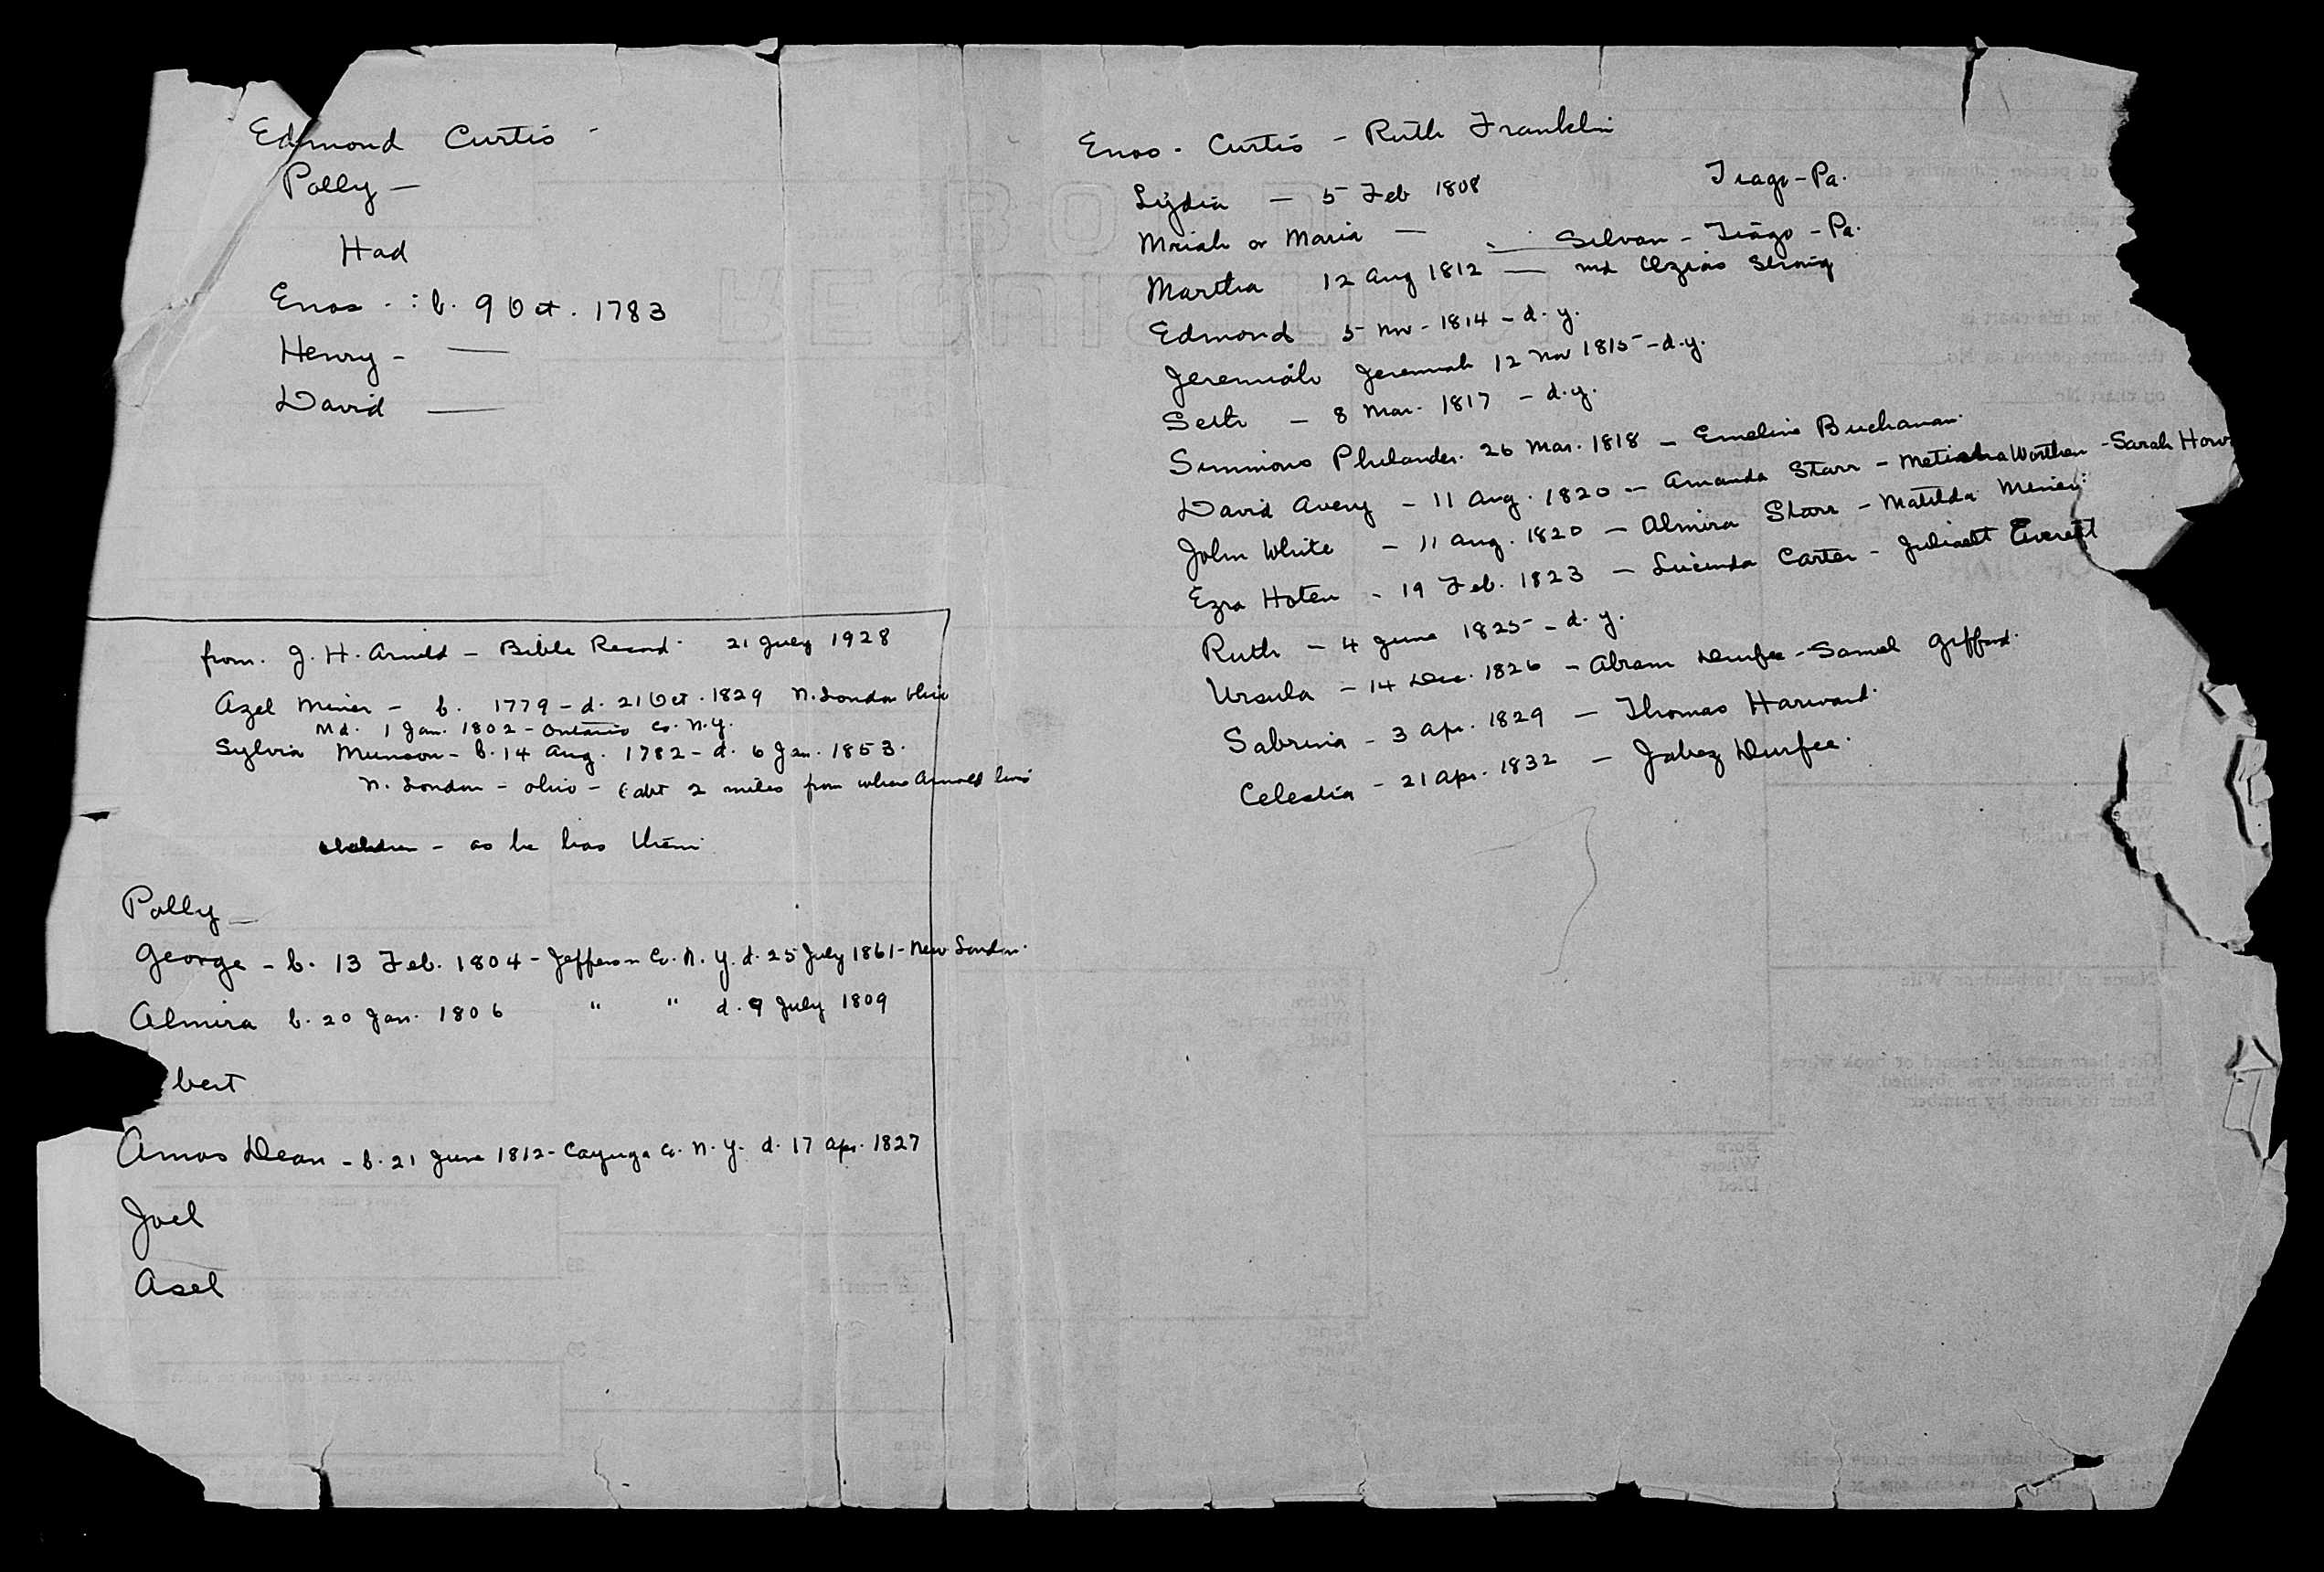 Edmond Curtis -
Polly —
Had
Enos - : b. 9 Oct. 1783
Henry - —
David —
from. J. H. Arnold - Bible Record - 21 July 1928
Azel Miner - b. 1779 - d. 21 Oct. 1829 N. London Ohio
Md. 1 Jan. 1802 - Ontario Co. N.Y.
Sylvia Munson - b. 14 Aug. 1782 - d. 6 Jan. 1853.
N. London - Ohio - (abt 2 miles from where Arnold lives
children - as he has them
Polly —
George - b. 13 Feb. 1804 - Jefferson Co. N.Y. d. 25 July 1861 - New London.
Almira b. 20 Jan. 1806 " " d. 9 July 1809
bert
Amos Dean - b. 21 June 1812 - Cayuga Co. N.Y. d. 17 Apr. 1827
Joel
Asel
Enos - Curtis - Ruth Franklin
Lydia - 5 Feb 1808 Tiago - Pa.
Mriah or Maria — Silvan - Tiago - Pa.
Martha 12 Aug 1812 — md Ezias Strong
Edmond 5 Nov - 1814 - d. y.
Jeremiah Jeremiah 12 Nov 1815 - d.y.
Seth - 8 Mar. 1817 - d.y.
Simmons Philander. 26 Mar. 1818 - Emeline Buchanan.
David Avery - 11 Aug. 1820 - Amanda Starr - Worthen - Sarah How
John White - 11 Aug. 1820 - Almira Starr - Matilda Miner:
Ezra Hoten - 19 Feb. 1823 - Lucinda Carter - Juliaett Everett
Ruth - 4 June 1825 - d. y.
Ursula - 14 Dec. 1826 - Abram Durfee - Samuel Gifford.
Sabrina - 3 Apr. 1829 - Thomas Harward.
Celestia - 21 Apr. 1832 - Jabez Durfee.